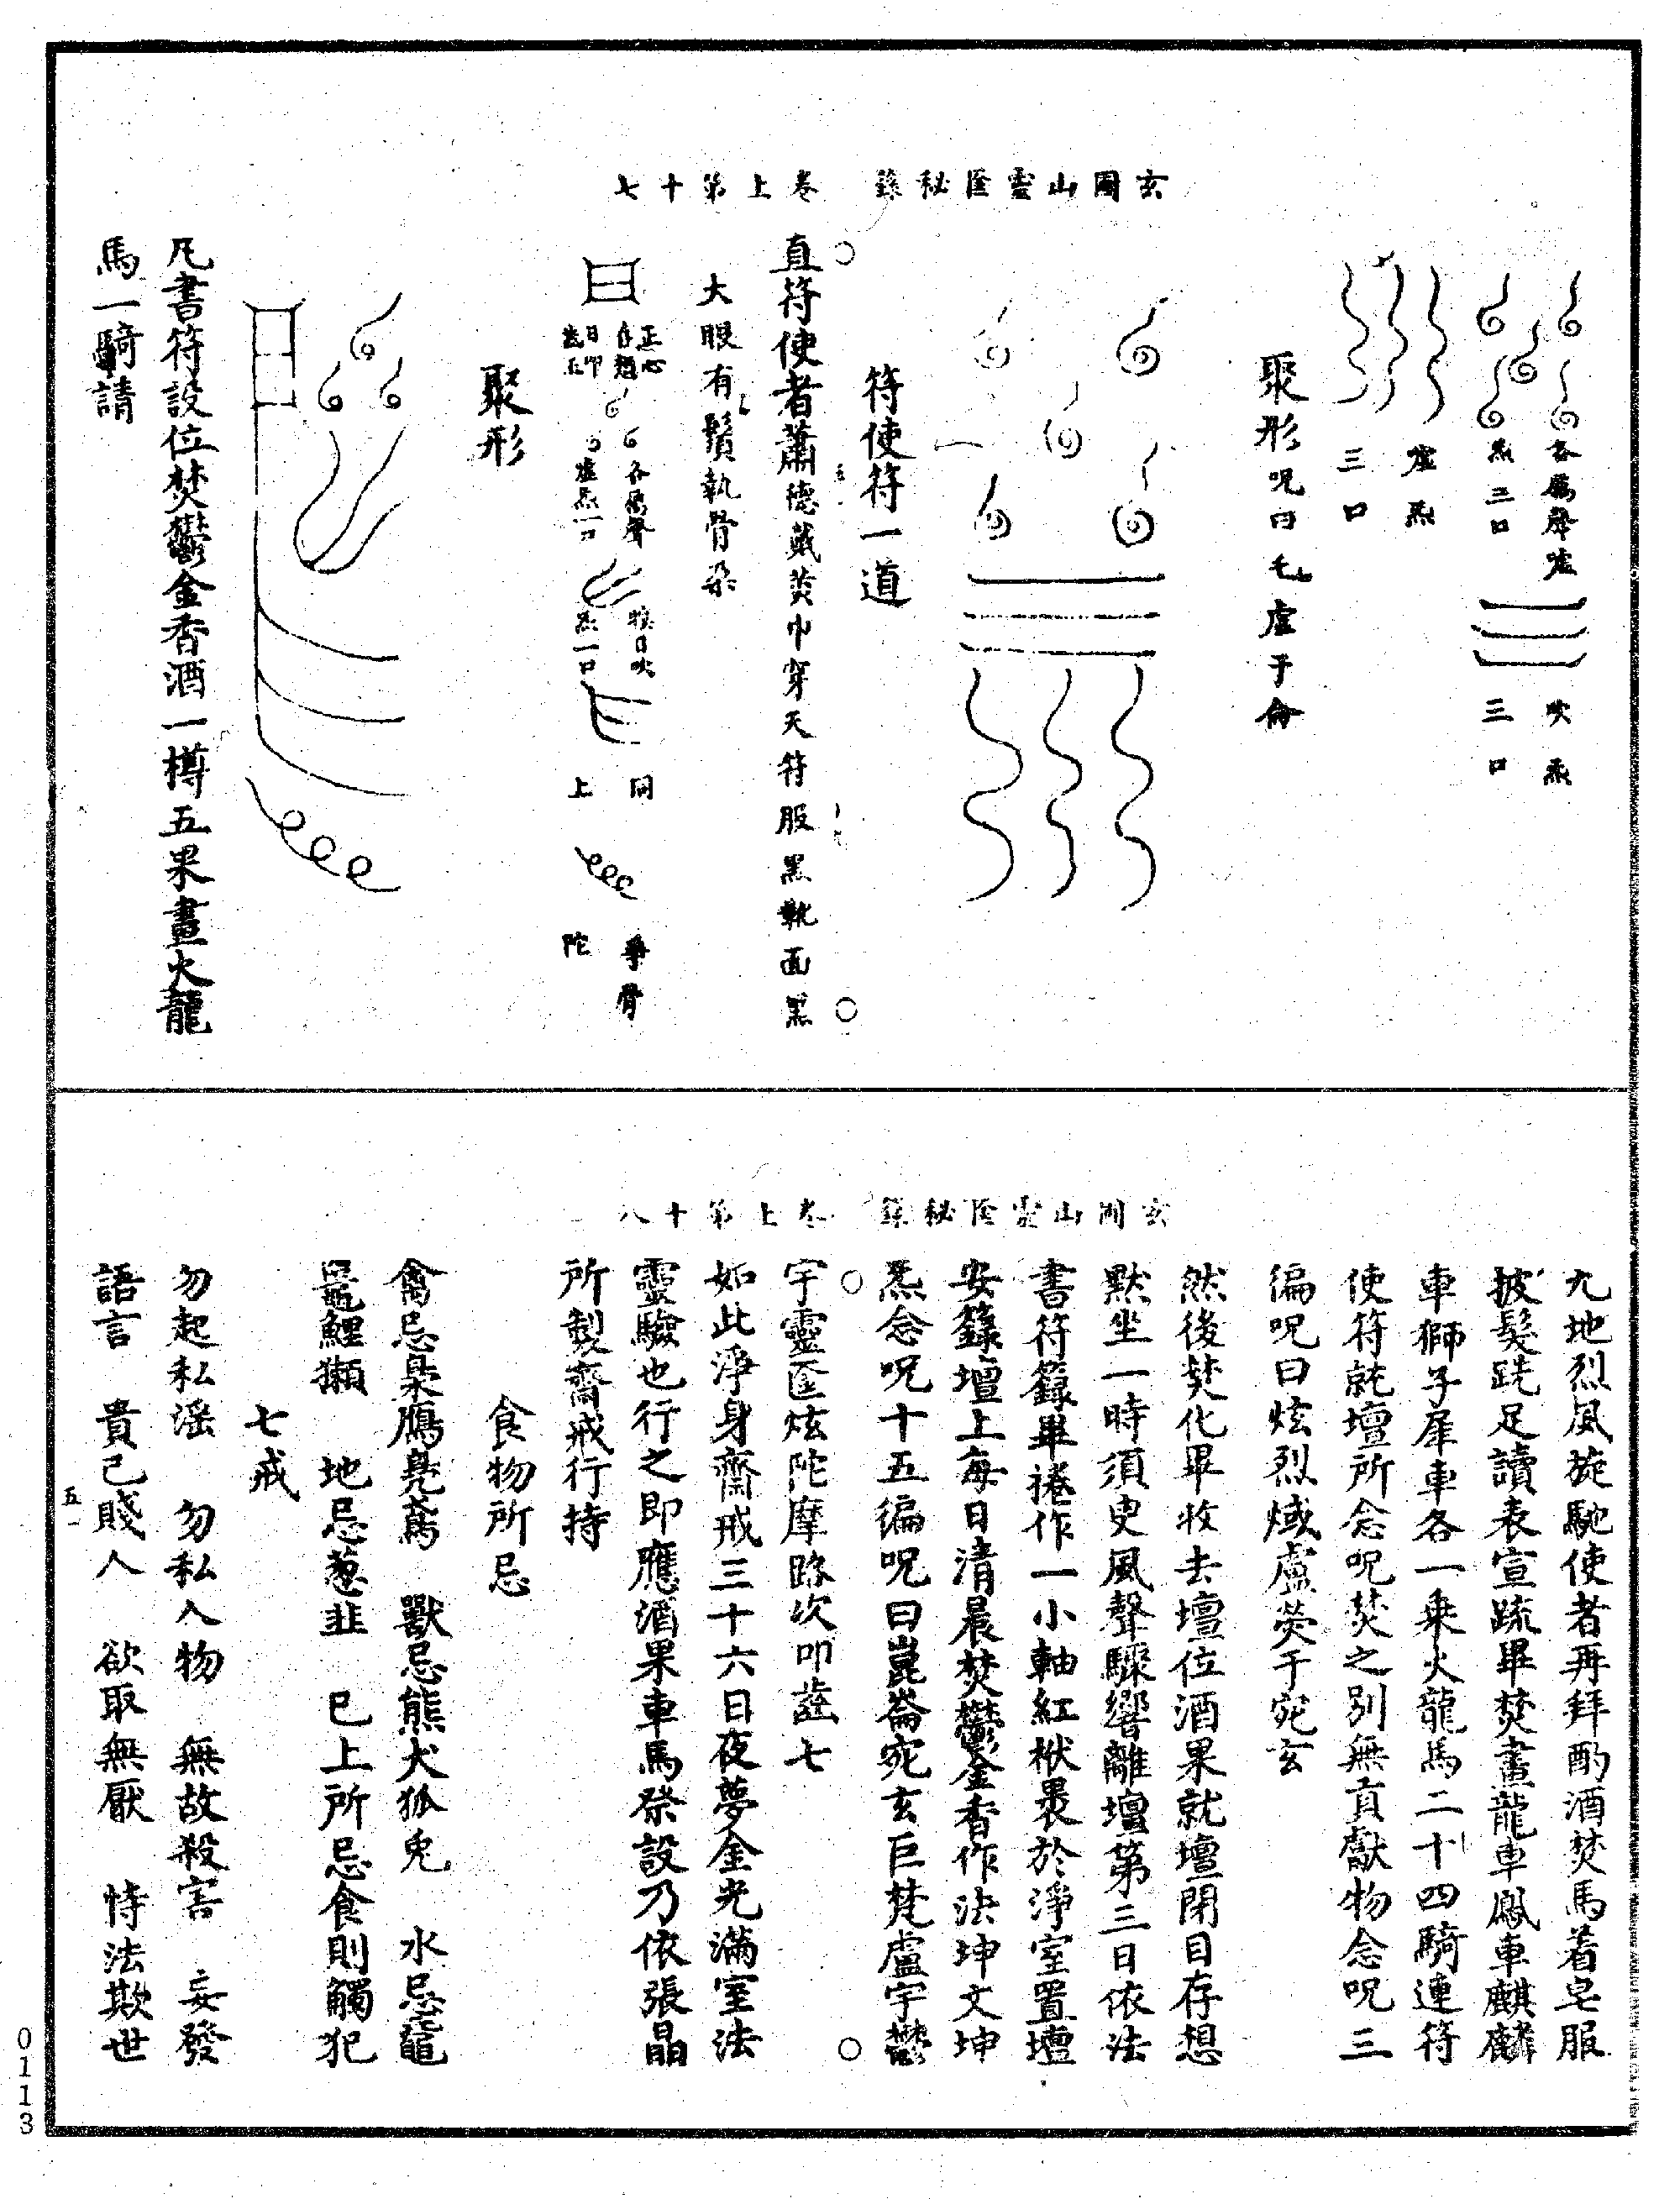 玄圃山靈匱秘籙　卷上第十七
各厲聲噓
炁三口
吹炁
三口
噓炁
三口
聚形呪曰乇虛于侖
符使符一道
直符使者蕭德戴黃巾穿天符服黑靴面黑
大眼有鬚執骨朶
正心
日叩
各厲聲
噓炁一口
猴口吹
炁一口
同
上
爭骨
陀
聚形
凡書符設位焚鬱金香酒一樽五果畫火龍
馬一騎請
玄圃山靈匱秘籙　卷上第十八
九地烈風旋馳使者再拜酌酒焚馬着皂服
披髮跣足讀表宣疏畢焚畫龍車鳳車麒麟
車獅子犀車各一乘火龍馬二十四騎連符
使符就壇所念呪焚之別無貢獻物念呪三
徧呪曰炫烈燏盧熒于宛玄
然後焚化畢收去壇位酒果就壇閉目存想
默坐一時須臾風聲驟響離壇第三日依法
書符籙畢捲作一小軸紅袱裹於淨室置壇
安籙壇上每日清晨焚鬱金香作法坤文坤
炁念呪十五徧呪曰崑崙宛玄巨梵盧宇鬱
宇靈匱炫陀摩路次叩齒七
如此淨身齋戒三十六日夜夢金光滿室法
靈驗也行之即應酒果車馬祭設乃依張晶
所製齋戒行持
食物所忌
禽忌梟鴈鳧鳶　獸忌熊犬狐兔　水忌黿
鼉鯉獺　地忌葱韭　已上所忌食則觸犯
七戒
勿起私滛　勿私入物　無故殺害　妄發
語言　貴己賤人　欲取無厭　恃法欺世
五一
0113